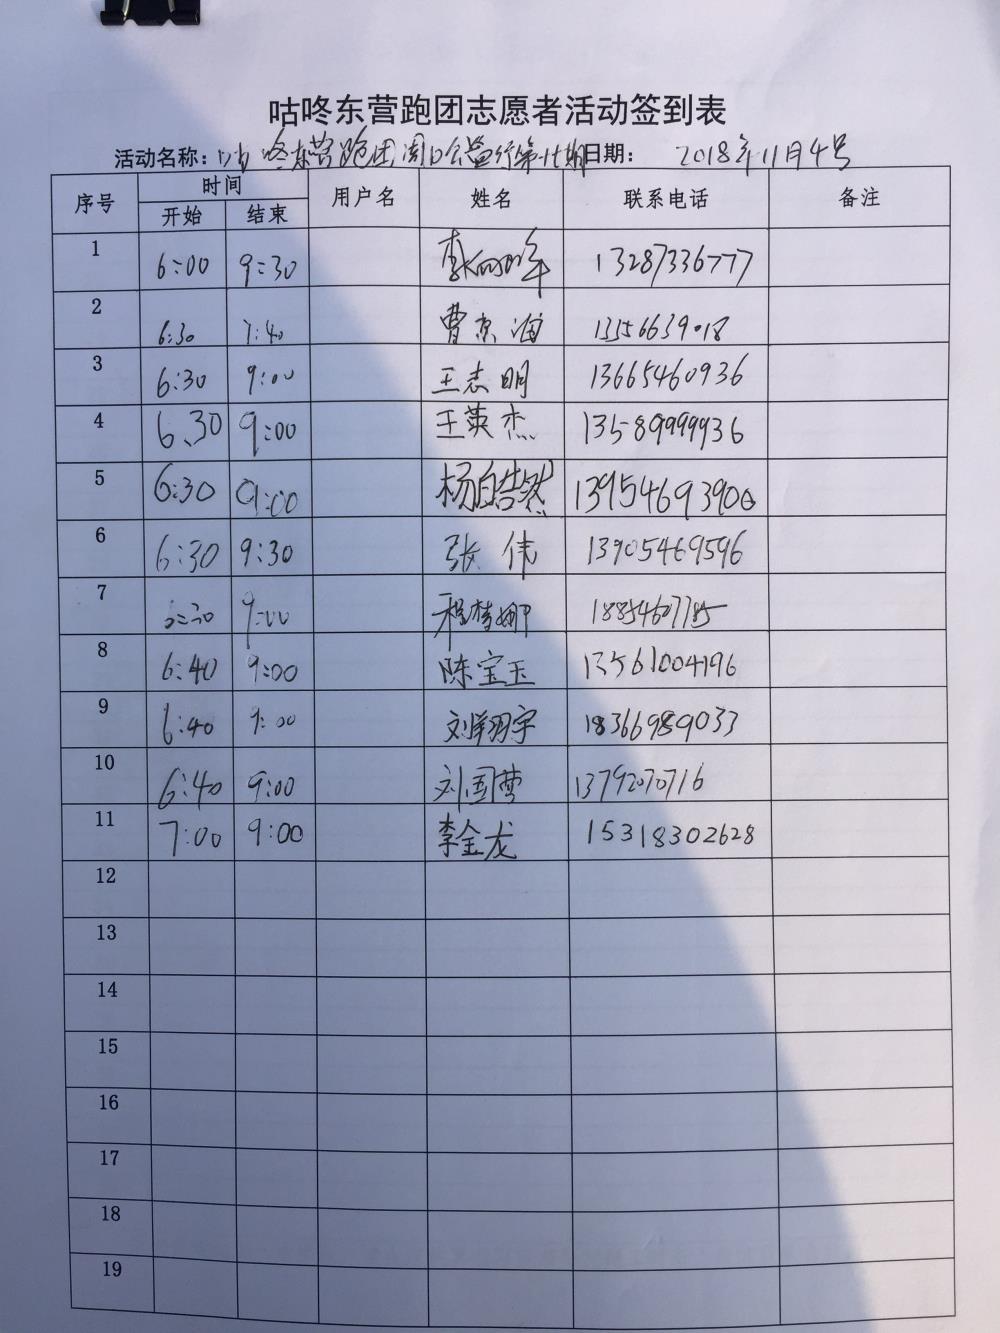 咕咚东营跑团志愿者活动签到表
活动名称：咕咚东营跑团周日公益行第廿期 日期： 2018年11月4号
序号 时间 用户名 姓名 联系电话 备注
开始 结束
1 6:00 9:30 李 13287336777
2 6:30 7:40 曹京海 13156639018
3 6:30 9:00 王志明 13665460936
4 6.30 9:00 王英杰 13589999936
5 6:30 9:00 杨皓然 13954693900
6 6:30 9:30 张伟 13905469596
7 6:30 9:00 程梦娜 18854607785
8 6:40 9:00 陈宝玉 13561004196
9 6:40 9:00 刘翔宇 18366989033
10 6:40 9:00 刘国营 13792070716
11 7:00 9:00 李金龙 15318302628
12
13
14
15
16
17
18
19